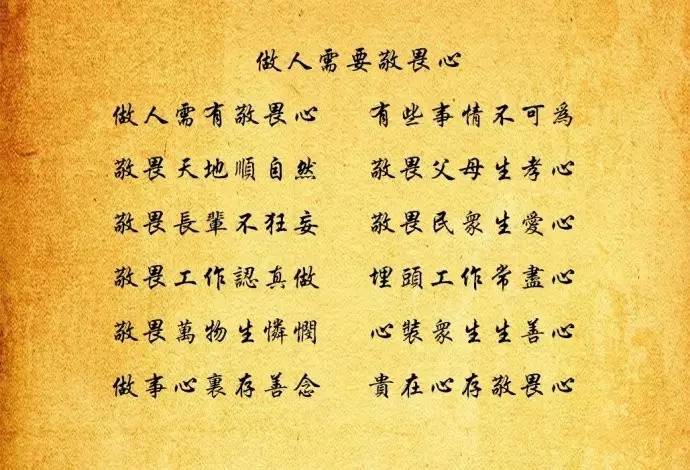 做人需要敬畏心
做人需有敬畏心　有些事情不可為
敬畏天地順自然　敬畏父母生孝心
敬畏長輩不狂妄　敬畏民衆生愛心
敬畏工作認真做　埋頭工作常盡心
敬畏萬物生憐憫　心裝衆生生善心
做事心裏存善念　貴在心存敬畏心